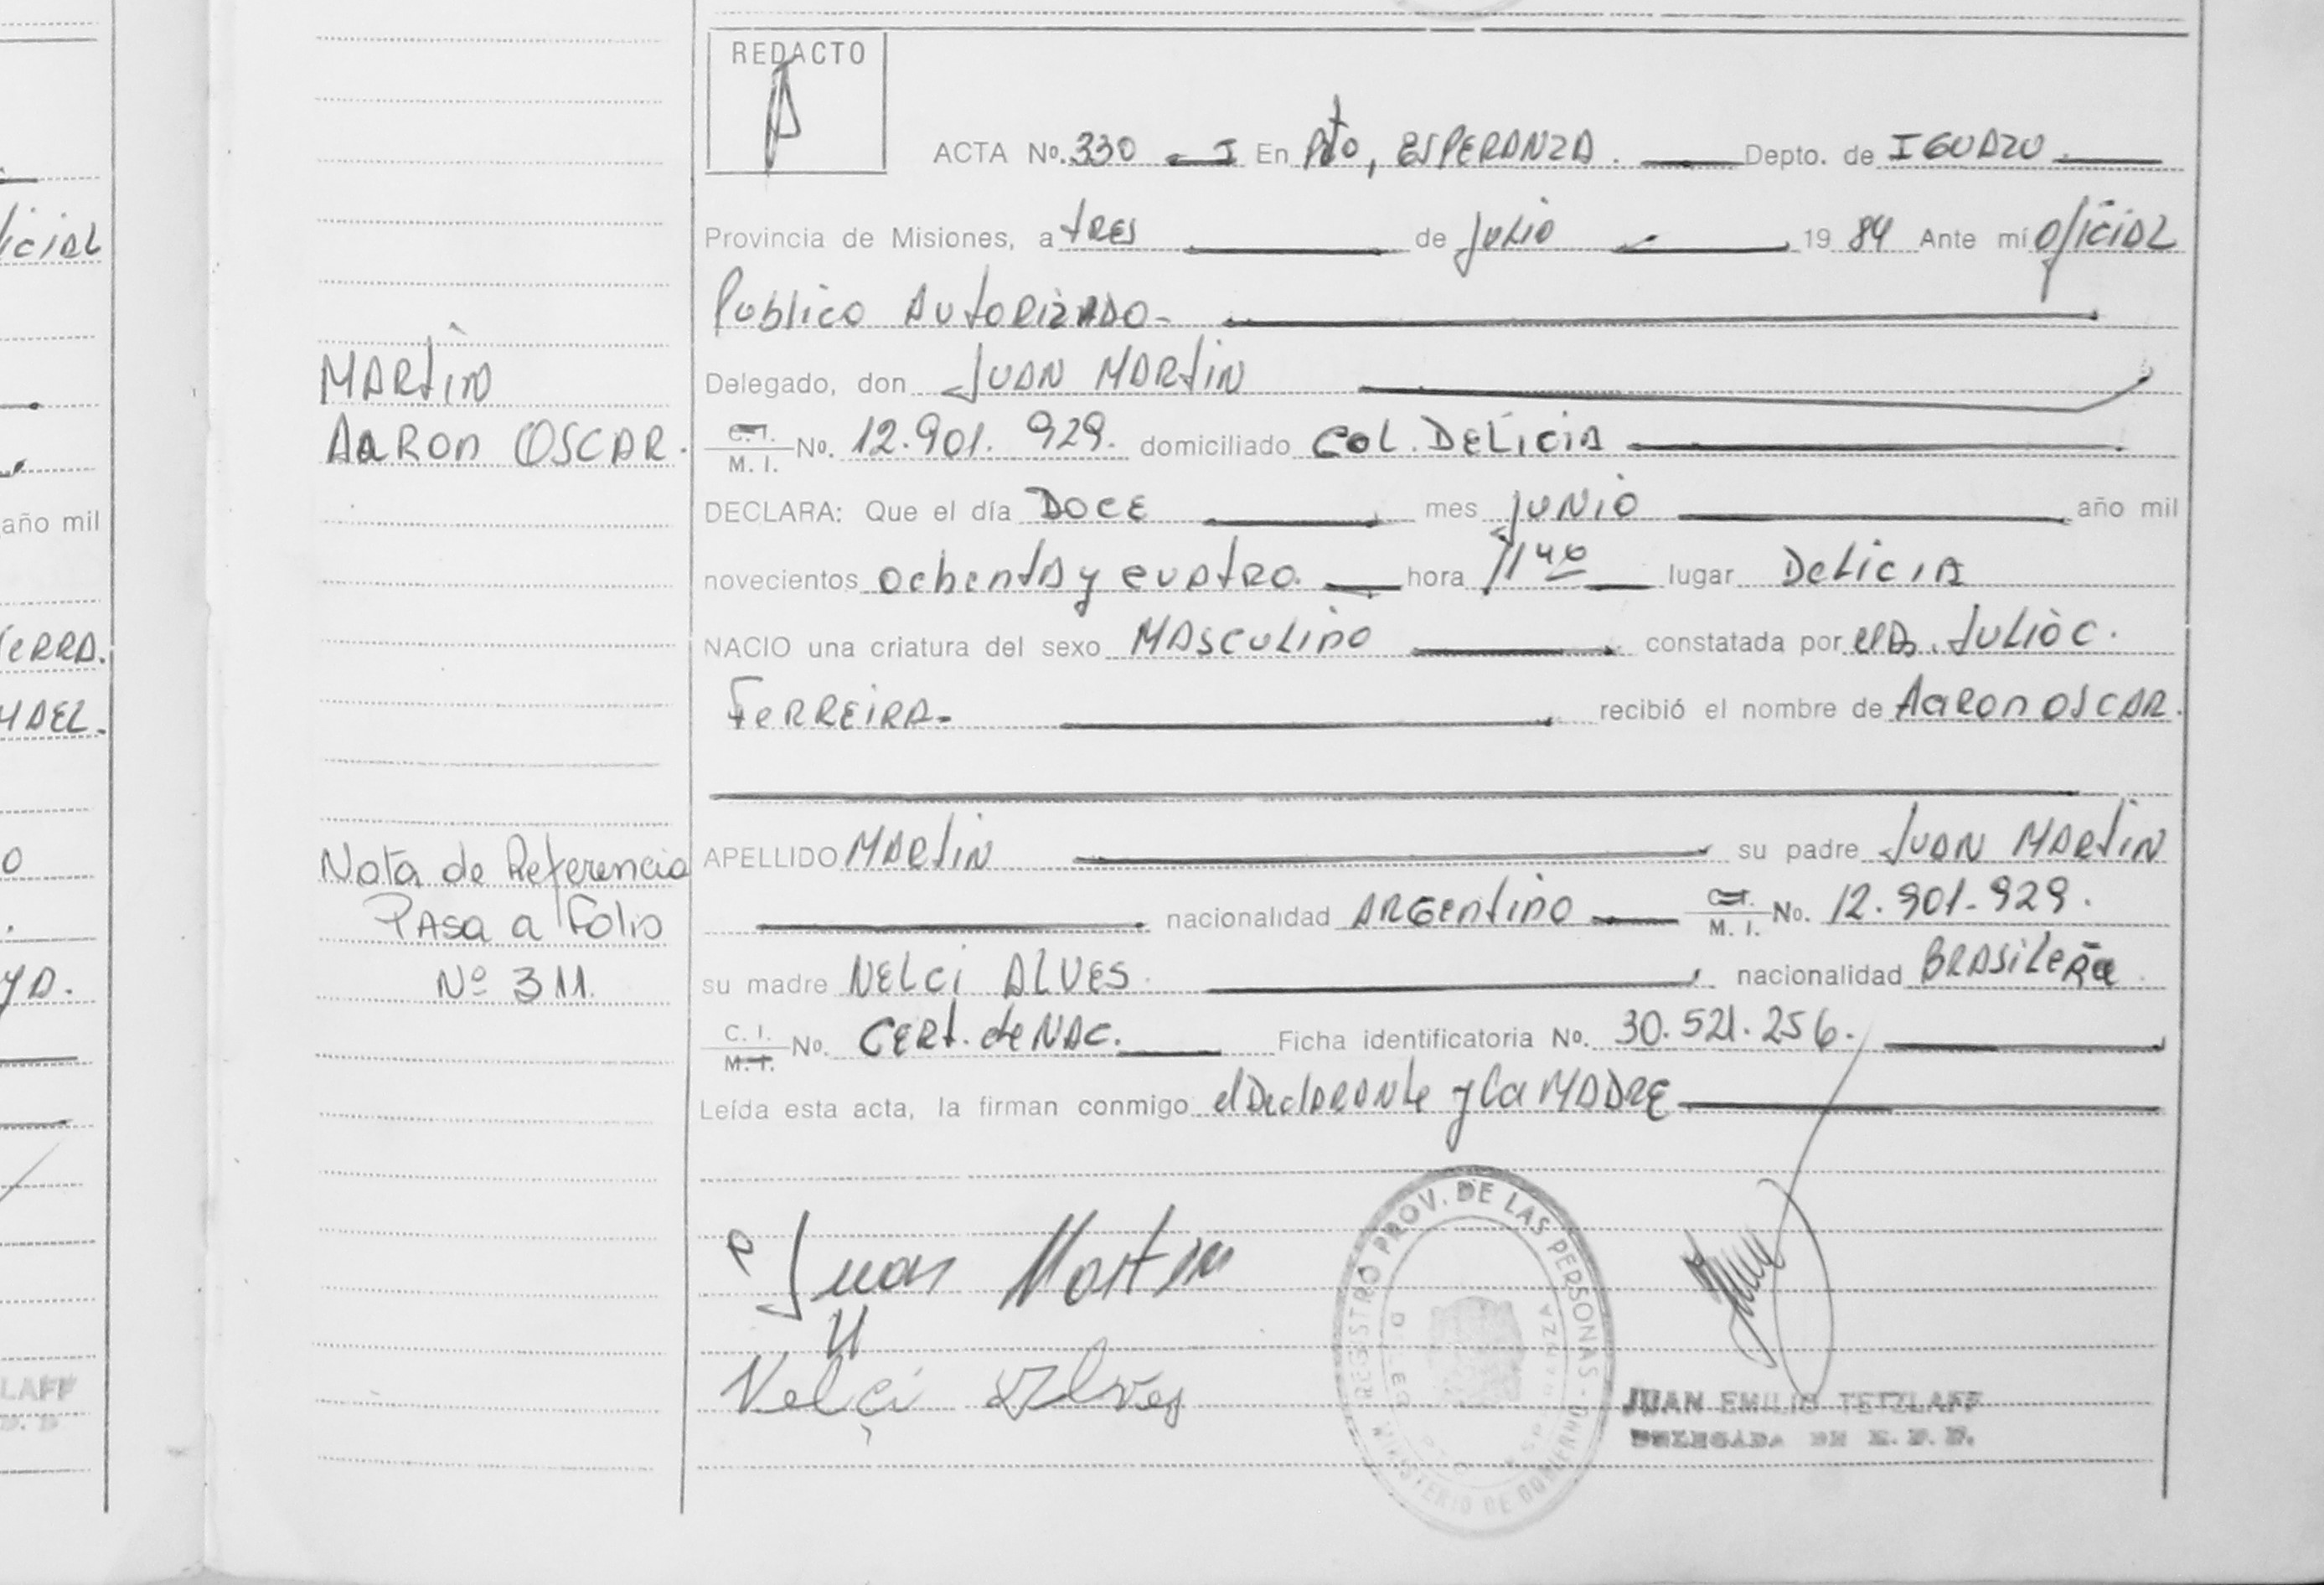 icial
año mil
ERRA.
LAFF
MARtin
AaRon OSCAR.
Nota de Referencia
PAsa a Folio
Nº 311.
REDACTO
ACTA No. 330 I En Pto, ESPERANZA. Depto. de IGUAZU.
Provincia de Misiones, a tRES de Julio 19 84 Ante mí Oficial
Publico AutoRizADO-
Delegado, don JUAN MARtiN
C. I.
M. I. No. 12.901.929. domiciliado COL. DELiciA
DECLARA: Que el día DOCE mes JUNIO año mil
novecientos ochentA y cuAtRo. hora 11 40 lugar DeLiciA
NACIO una criatura del sexo MASCULiNO constatada por JULIO C.
FeRREiRA- recibió el nombre de AaRon OSCAR.
APELLIDO MARtiN su padre JUAN MARtiN
nacionalidad ARGentiNO C. I.
M. I. No. 12.901.929.
su madre NELCi ALVES. nacionalidad BRASileña
C. I.
M. I. No. CERt. de NAC. Ficha identificatoria No. 30.521.256.
Leída esta acta, la firman conmigo el DeclARANte y la MADRE
Juan Martin
Nelci Alves
REGISTRO PROV. DE LAS PERSONAS - MINISTERIO DE GOBIERNO
JUAN EMILIO TETZLAFF